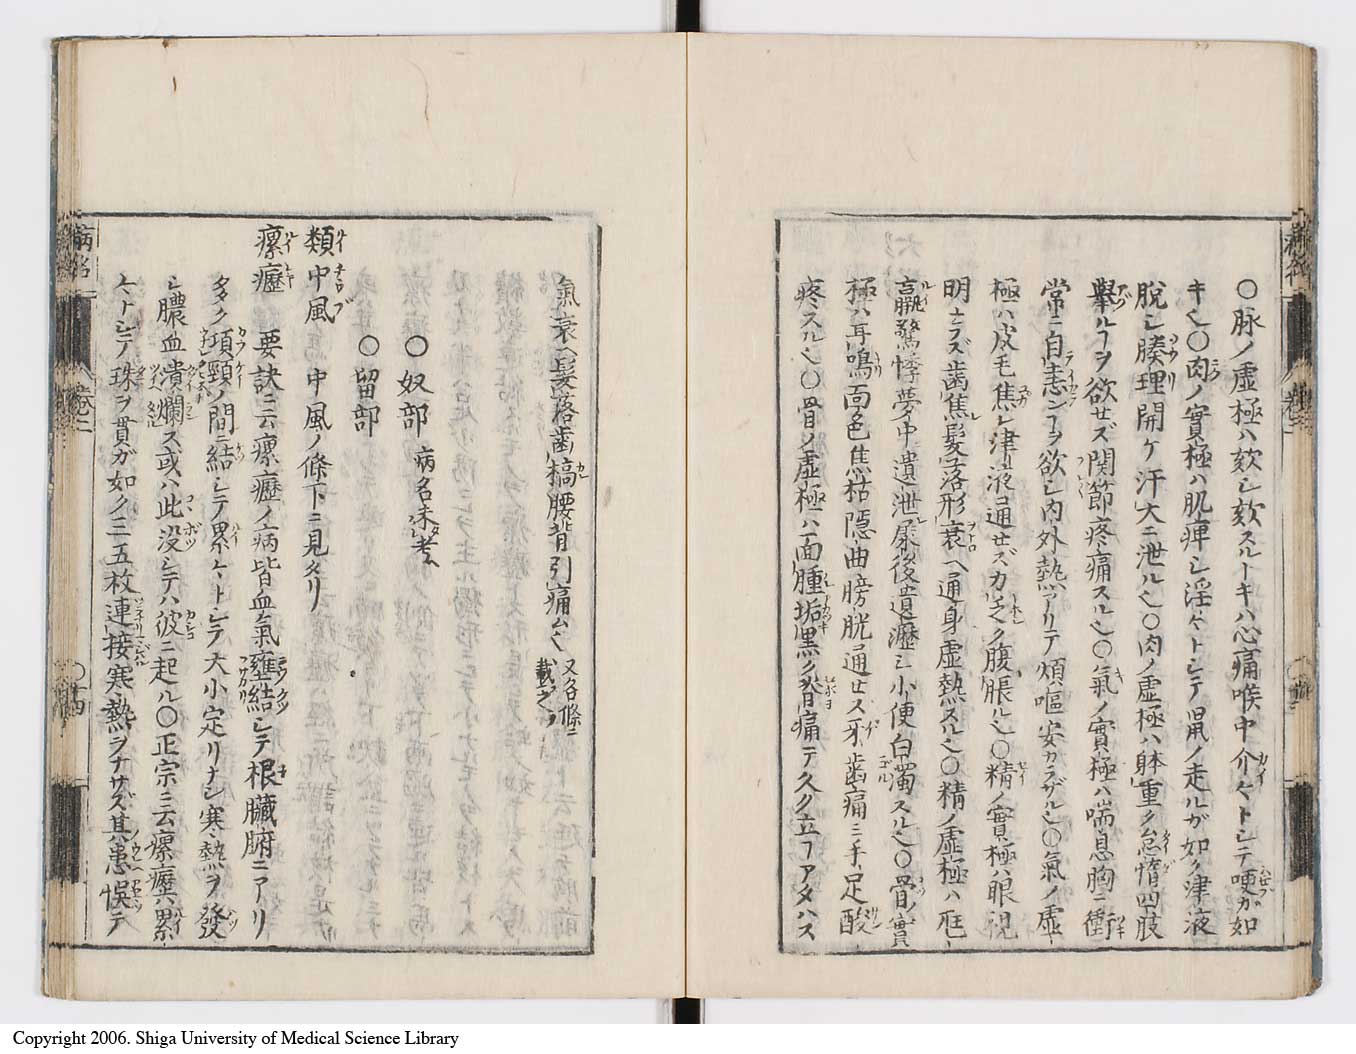 〇脉ノ虚極ハ欬シ欬スルトキハ心痛喉中介々トシテ哽カ如
キ也〇肉ノ實極ハ肌痺シ淫々トシテ鼠ノ走ルガ如ク津液
脱シ腠理開ケ汗大ニ泄ル也〇肉ノ虚極ハ躰重ク怠惰四肢
擧ルヿヲ欲セズ関節疼痛スル也〇氣ノ實極ハ喘息胸ニ衝
常ニ自恚ンヿヲ欲シ内外熱アリテ煩嘔安カラザル也〇氣ノ虚
極ハ皮毛焦レ津液通セズ力乏ク腹脹ル也〇精ノ實極ハ眼視
明ナラズ歯焦髪落形衰ヘ通身虚熱スル也〇精ノ虚極ハ尫
羸驚悸夢中遺泄屎後遺瀝シ小便白濁スル也〇骨ノ實
極ハ耳鳴面色焦枯隠曲膀胱通セス牙歯痛ミ手足酸
疼スル也〇骨ノ虚極ハ面腫垢黒ク脊痛テ久ク立ヿアタハス
氣衰ヘ髪落歯槁腰背引痛ム也 又各條ニ載之
〇奴部 病名未考
〇留部
類中風 中風ノ條下ニ見タリ
瘰癧 要訣ニ云瘰癧ノ病皆血氣壅結シテ根臓腑ニアリ
多ク項頸ノ間ニ結シテ累々トシテ大小定リナシ寒熱ヲ發
シ膿血潰爛ス或ハ此没シテハ彼ニ起ル〇正宗ニ云瘰癧ハ累
々トシテ珠ヲ貫ガ如ク三五枚連接寒熱ヲナサズ其患悞テ
病名
卷二
〇十四
Copyright 2006. Shiga University of Medical Science Library